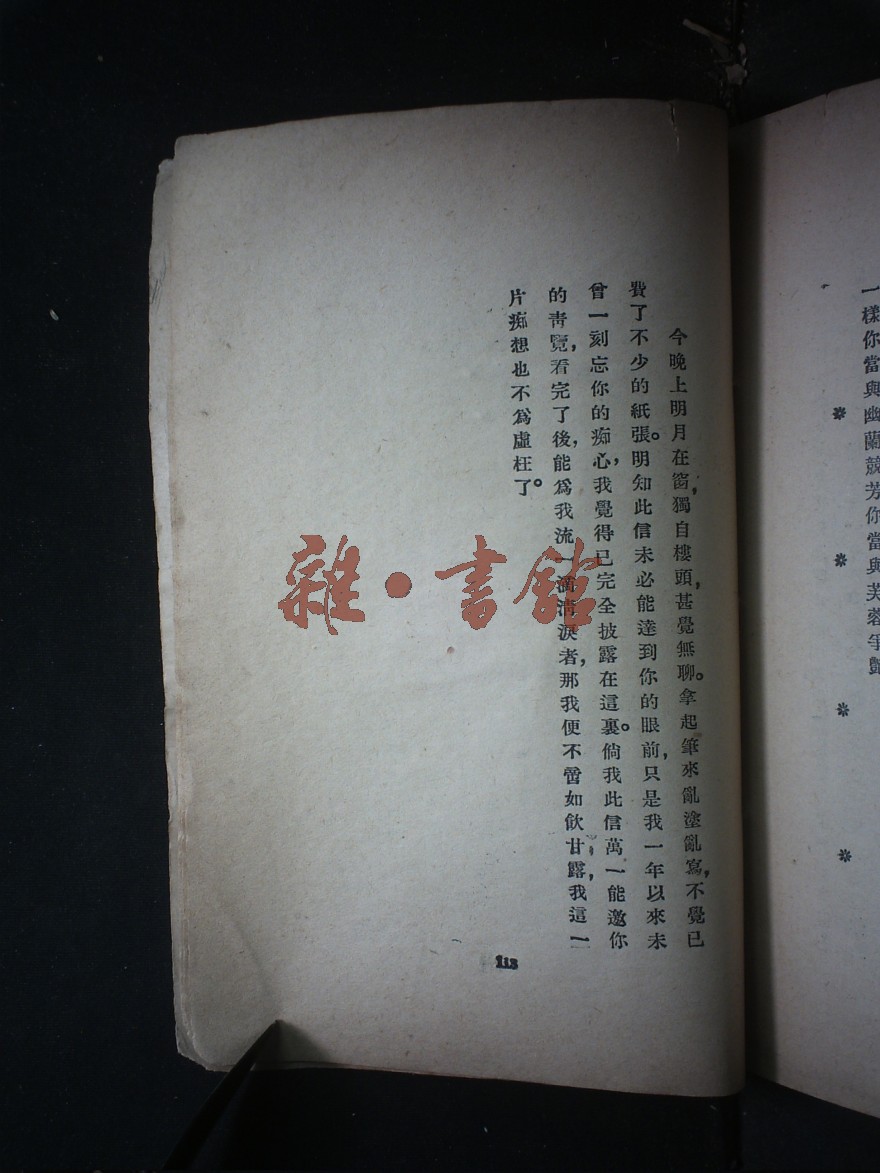 一樣你當與幽蘭競芳你當與芙蓉爭艷
* * * *
今晚上明月在窗，獨自樓頭，甚覺無聊。拿起筆來亂塗亂寫，不覺已
費了不少的紙張。明知此信未必能達到你的眼前，只是我一年以來未
曾一刻忘你的痴心，我覺得已完全披露在這裏。倘我此信萬一能邀你
的靑覽，看完了後，能爲我流一滴淸淚者，那我便不啻如飲甘露，我這一
片痴想也不爲虛枉了。
113
雜·書館